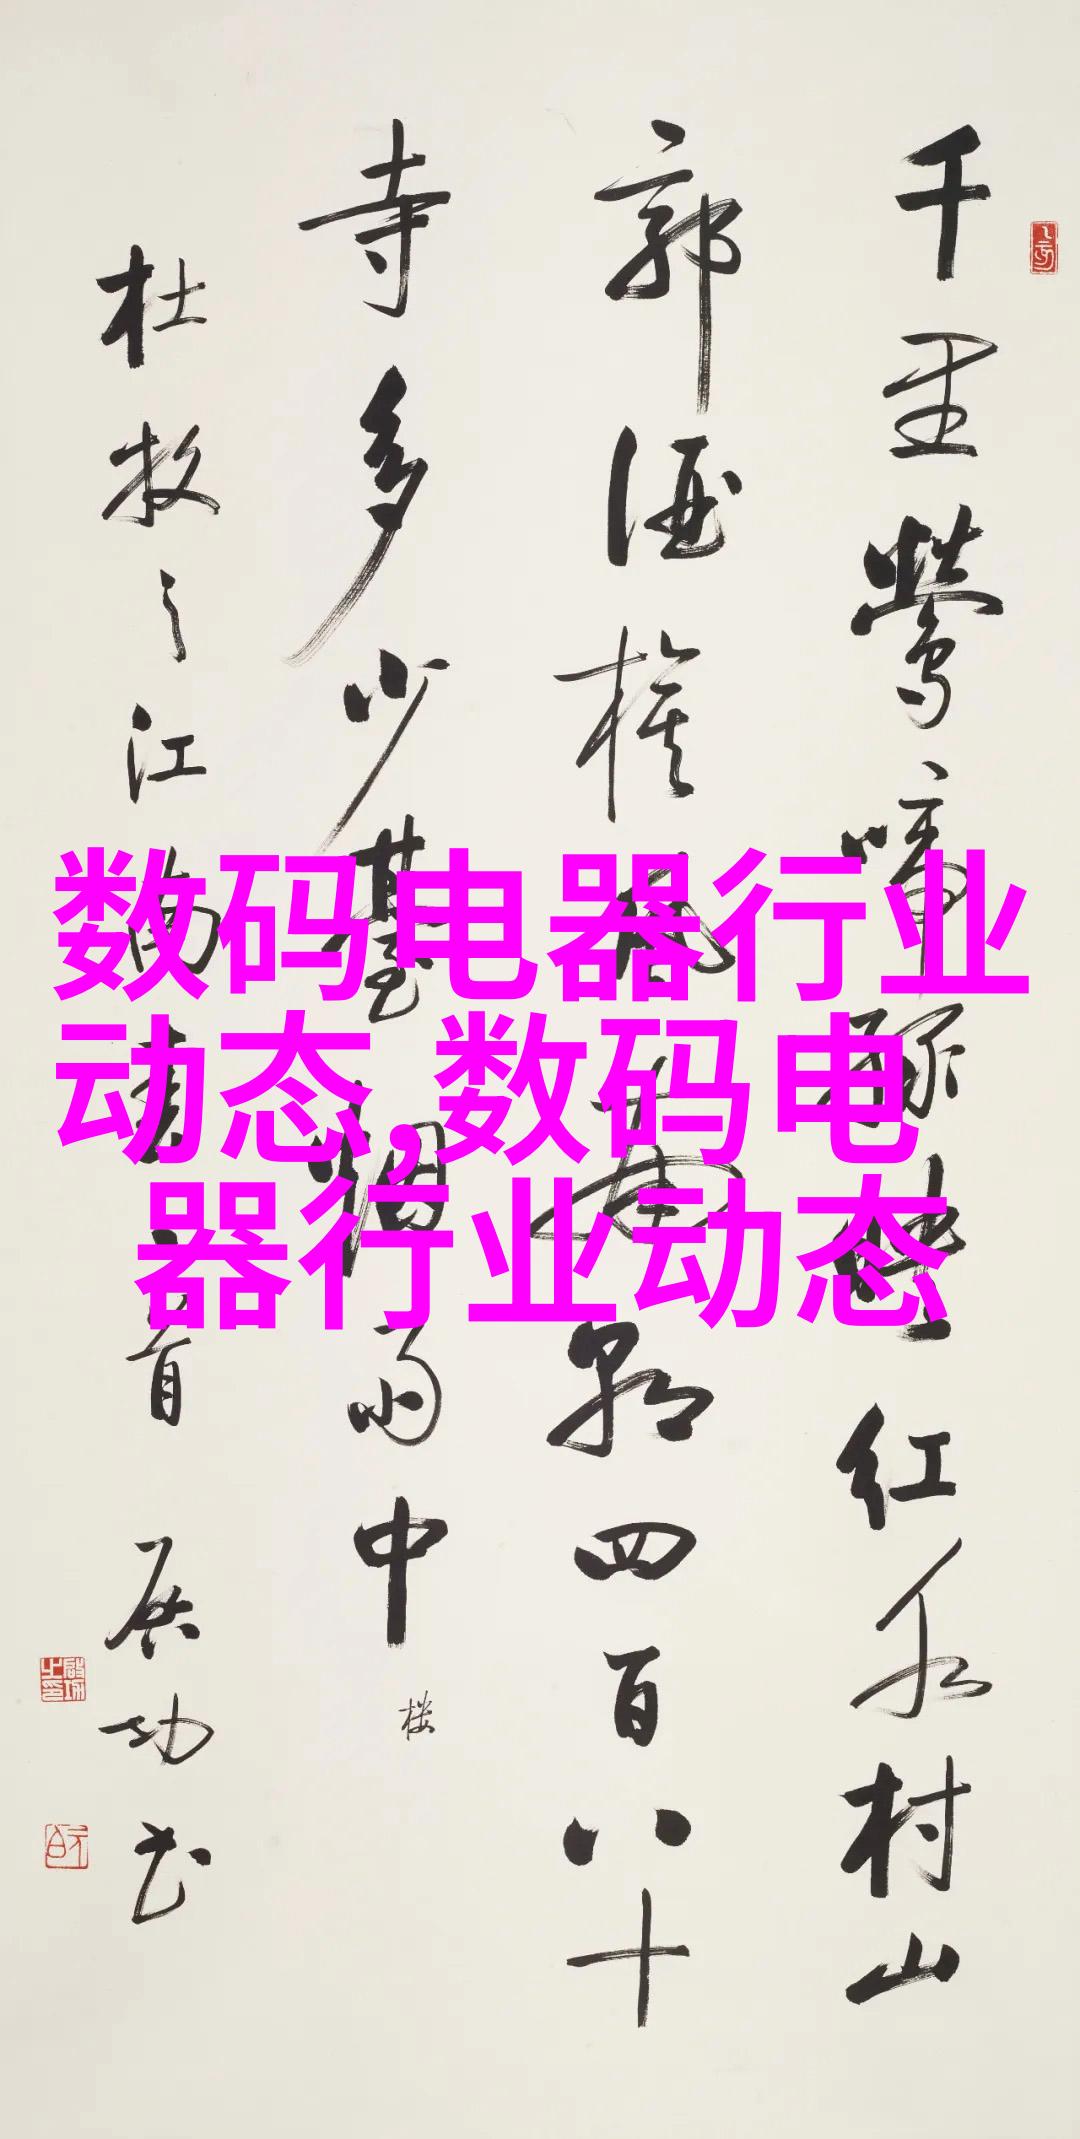 数码电器行业
动态,数码电
器行业动态
千里鶯啼綠映红水村山
郭酒旗風南朝四百八十
寺多少臺烟雨中
楼
杜牧之江南春一首 启功书